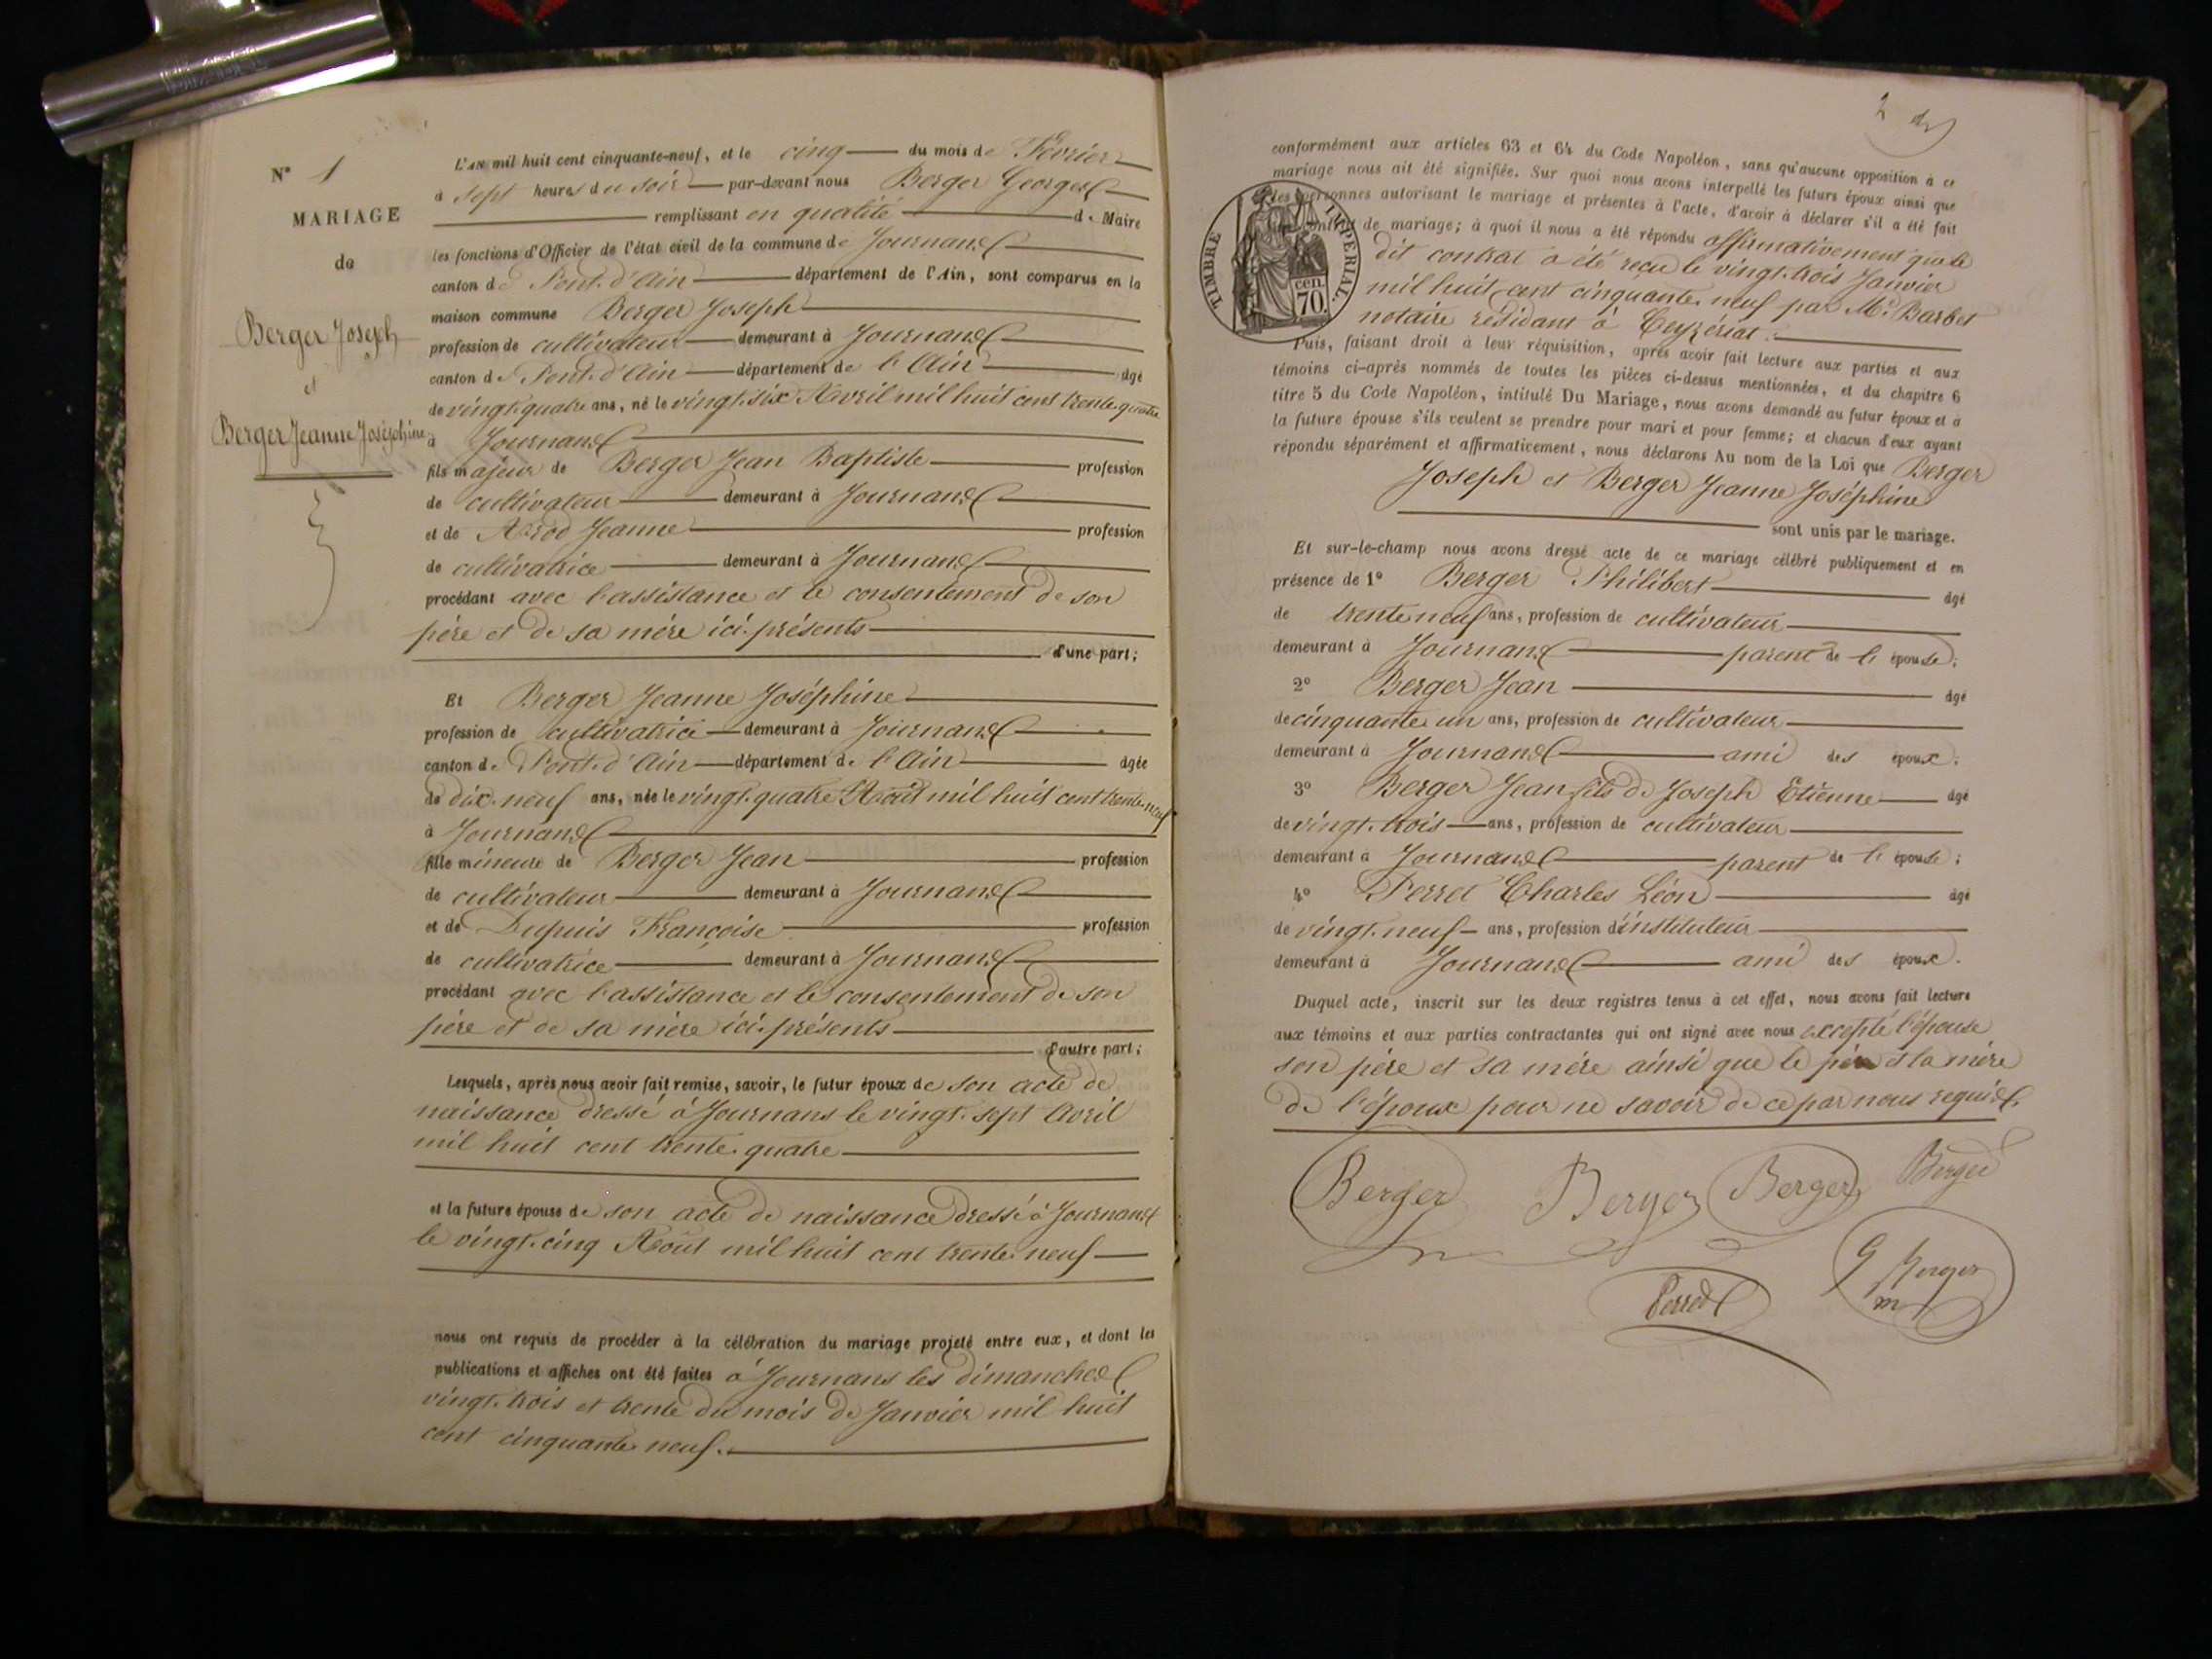 N° 1
MARIAGE
de
Berger Joseph
et
Berger Jeanne Joséphine
L'AN mil huit cent cinquante-neuf, et le cinq du mois de Février
à sept heures du soir par-devant nous Berger Georges
remplissant en qualité de Maire
les fonctions d'Officier de l'état civil de la commune de Journans
canton de Pont-d'Ain département de l'Ain, sont comparus en la
maison commune Berger Joseph
profession de cultivateur demeurant à Journans
canton de Pont-d'Ain département de l'Ain âgé
de vingt-quatre ans, né le vingt-six Avril mil huit cent trente-quatre
à Journans
fils majeur de Berger Jean Baptiste profession
de cultivateur demeurant à Journans
et de Arod Jeanne profession
de cultivatrice demeurant à Journans
procédant avec l'assistance et le consentement de son
père et de sa mère ici-présents
d'une part;
Et Berger Jeanne Joséphine
profession de cultivatrice demeurant à Journans
canton de Pont-d'Ain département de l'Ain âgée
de dix-neuf ans, née le vingt-quatre Août mil huit cent trente-neuf
à Journans
fille mineure de Berger Jean profession
de cultivateur demeurant à Journans
et de Dupuis Françoise profession
de cultivatrice demeurant à Journans
procédant avec l'assistance et le consentement de son
père et de sa mère ici-présents
d'autre part;
Lesquels, après nous avoir fait remise, savoir, le futur époux de son acte de
naissance dressé à Journans le vingt-sept Avril
mil huit cent trente-quatre
et la future épouse de son acte de naissance dressé à Journans
le vingt-cinq Août mil huit cent trente-neuf
nous ont requis de procéder à la célébration du mariage projeté entre eux, et dont les
publications et affiches ont été faites à Journans les dimanches
vingt-trois et trente du mois de Janvier mil huit
cent cinquante-neuf.
2
conformément aux articles 63 et 64 du Code Napoléon, sans qu'aucune opposition à ce
mariage nous ait été signifiée. Sur quoi nous avons interpellé les futurs époux ainsi que
les personnes autorisant le mariage et présentes à l'acte, d'avoir à déclarer s'il a été fait
contrat de mariage; à quoi il nous a été répondu affirmativement que le
dit contrat a été reçu le vingt-trois Janvier
mil huit cent cinquante-neuf par Me Barbet
notaire résidant à Ceyzériat.
TIMBRE IMPÉRIAL.
cen.
70.
Puis, faisant droit à leur réquisition, après avoir fait lecture aux parties et aux
témoins ci-après nommés de toutes les pièces ci-dessus mentionnées, et du chapitre 6
titre 5 du Code Napoléon, intitulé Du Mariage, nous avons demandé au futur époux et à
la future épouse s'ils veulent se prendre pour mari et pour femme; et chacun d'eux ayant
répondu séparément et affirmativement, nous déclarons Au nom de la Loi que Berger
Joseph et Berger Jeanne Joséphine
sont unis par le mariage.
Et sur-le-champ nous avons dressé acte de ce mariage célébré publiquement et en
présence de 1° Berger Philibert âgé
de trente neuf ans, profession de cultivateur
demeurant à Journans parent de l'épouse;
2° Berger Jean âgé
de cinquante un ans, profession de cultivateur
demeurant à Journans ami des époux;
3° Berger Jean fils de Joseph Etienne âgé
de vingt-trois ans, profession de cultivateur
demeurant à Journans parent de l'épouse;
4° Perret Charles Léon âgé
de vingt-neuf ans, profession d'instituteur
demeurant à Journans ami des époux.
Duquel acte, inscrit sur les deux registres tenus à cet effet, nous avons fait lecture
aux témoins et aux parties contractantes qui ont signé avec nous excepté l'épouse
son père et sa mère ainsi que le père et la mère
de l'époux pour ne savoir de ce par nous requis.
Berger Berger Berger Berger
Perret G Berger
m